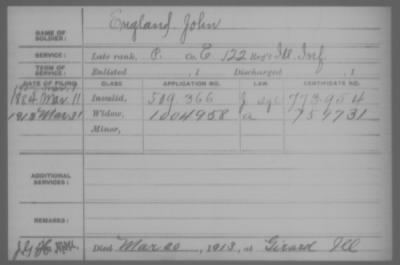 NAME OF SOLDIER: England, John
SERVICE: Late rank, P. Co. E, 122 Reg't Ill. Inf.
TERM OF SERVICE: Enlisted , 1 Discharged , 1
DATE OF FILING. CLASS. APPLICATION NO. LAW. CERTIFICATE NO.
Mar. 11 Invalid, 509 366 773.904
1913 Mar 31 Widow, 1004958 a 757731
Minor,
ADDITIONAL SERVICES:
REMARKS:
Died Mar 20, 1913, at Girard Ill